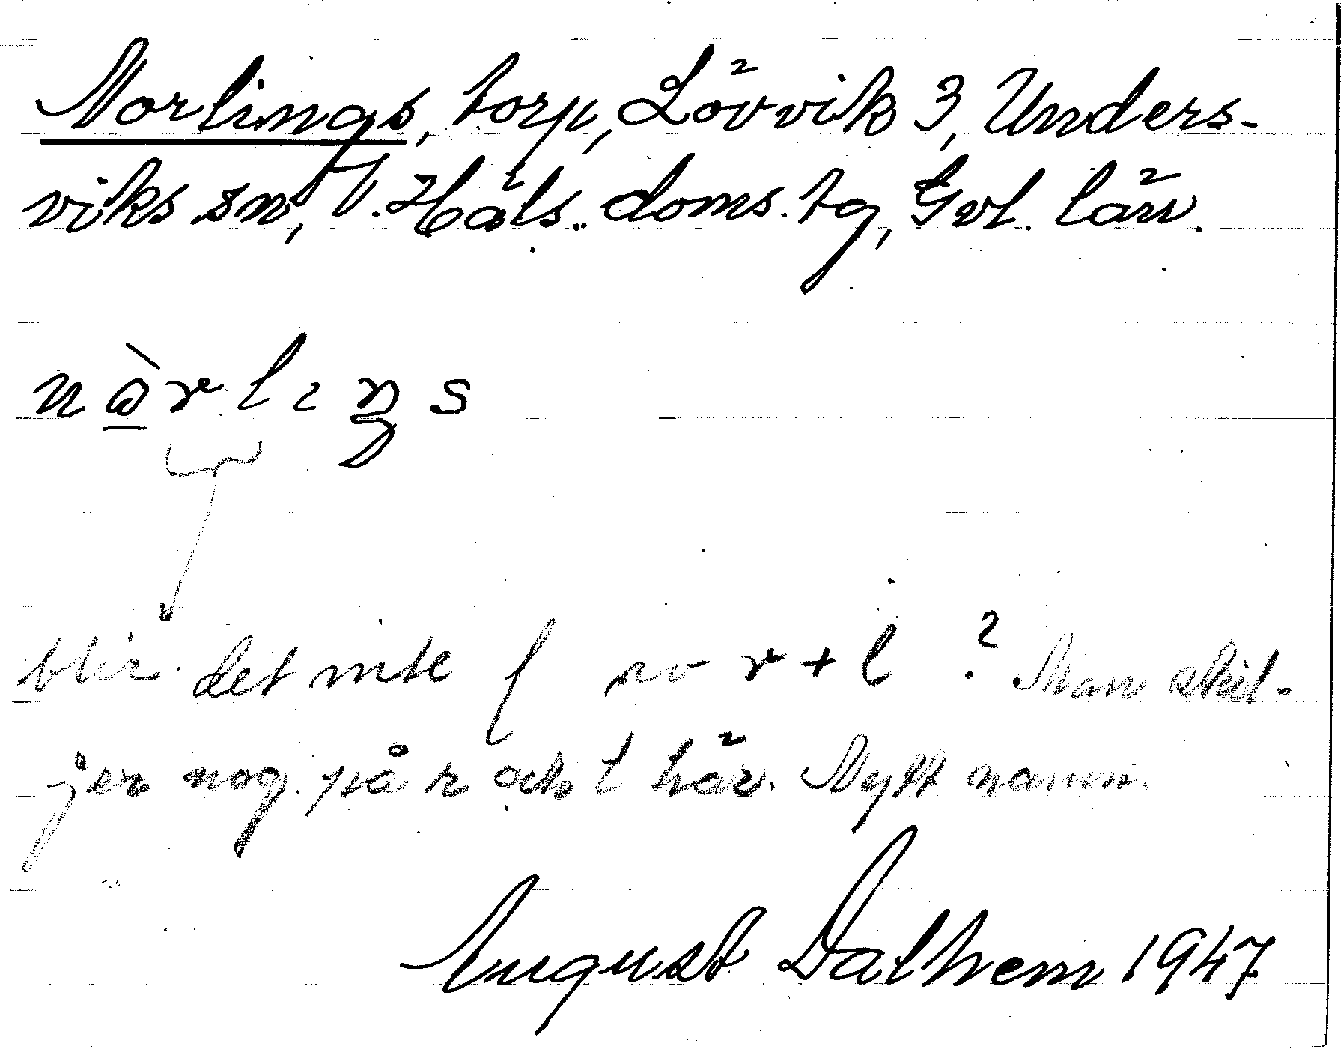 Norlings, torp, Lövvik 3, Unders-
viks sn, V. Häls. doms. tg, Gvl. län.
nɷ̲̀rlıŋs
blir det inte ɽ av r+l ? Man skil-
jer nog på r och l här. Nytt namn.
August Dalhem 1947